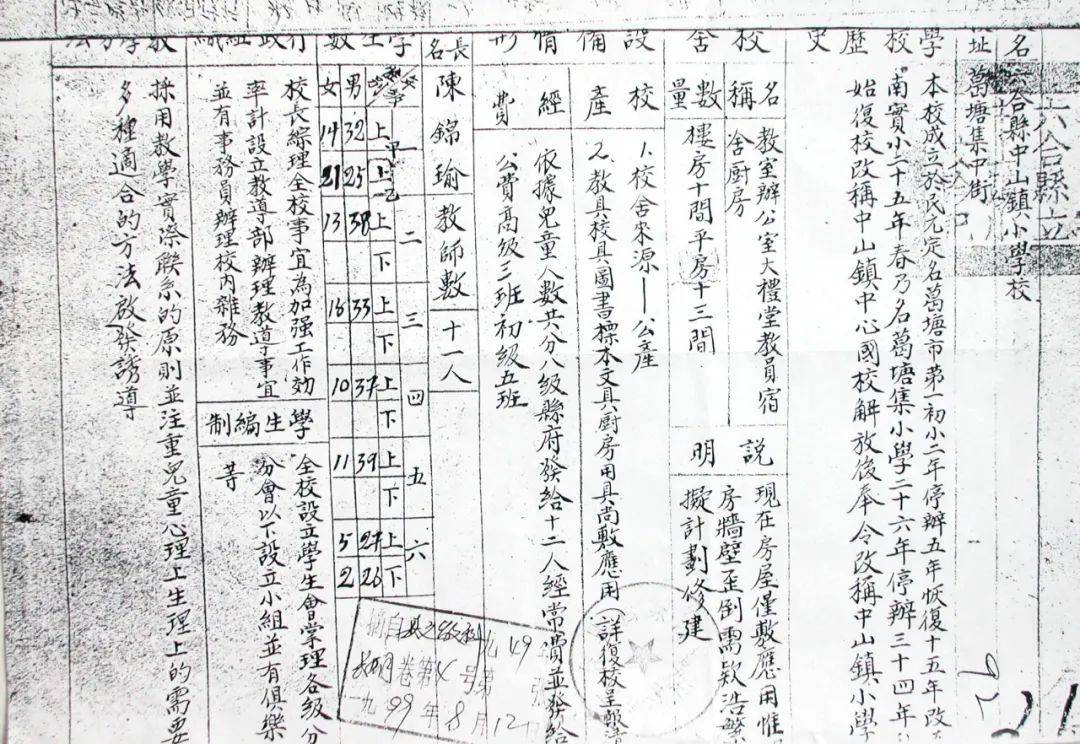 六合縣立
名 六合縣中山鎮小學校
校址 葛塘集中街
學校歷史
本校成立於民元定名葛塘市第一初小二年停辦五年恢復十五年改
南實小二十五年春乃名葛塘集小學二十六年停辦三十四年
始復校改稱中山鎮中心國校解放後奉令改稱中山鎮小學
校舍
名稱
教室辦公室大禮堂教員宿
舍厨房
數量
樓房十間平房十三間
説明
現在房屋僅敷應用惟
房牆壁歪倒需欵浩繁
擬計劃修建
設備情形
校產
1.校舍來源——公產
2.教具校具圖書標本文具厨房用具尚敷應用(詳復校呈報清
經費
依據兒童人數共分八級縣府發給十二人經常費並發給
公費高級三班初級五班
長名 陳錦瑜 教師數 十一人
學生數
一 二 三 四 五 六
上甲 上乙 上 下 上 下 上 下 上 下 上 下
男 32 25 38 33 37 39 27 26
女 14 21 13 16 10 11 5 2
行政組織
校長綜理全校事宜為加强工作効
率計設立教導部辦理教導事宜
並有事務員辦理校内雜務
學生編制
全校設立學生會掌理各級分
分會以下設立小組並有俱樂
等
教學方法
採用教學實際聯系的原則並注重兒童心理上生理上的需要
多種適合的方法啟發誘導
摘自
49
卷第4号第 張
一九99年8月12日
92
21